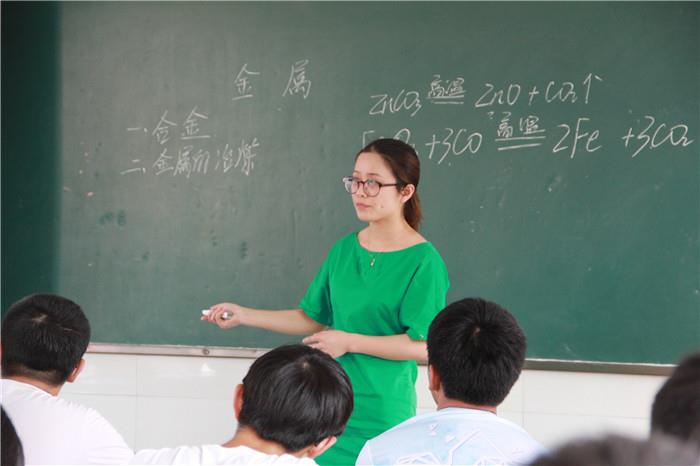 金属
一.合金
二.金属的冶炼
ZnCO₃ 高温 ZnO + CO₂↑
+3CO 高温 2Fe +3CO₂